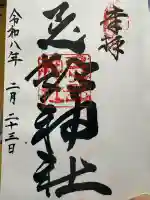 奉拝
神社
令和八年
二月二十三日